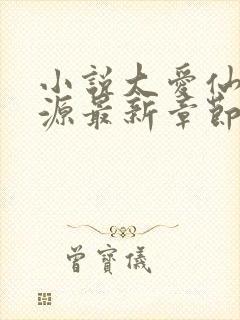 小說太愛仙
源最新章節
曾寶儀